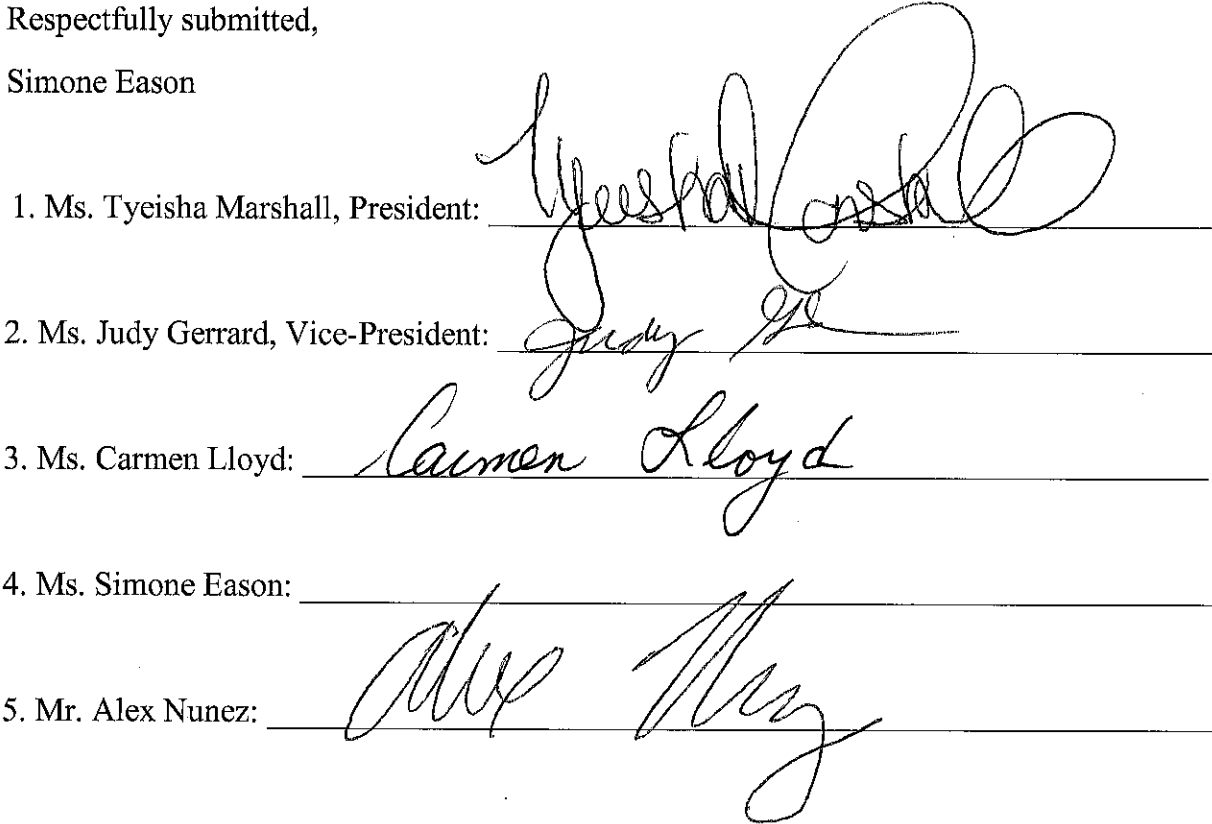 Respectfully submitted,
Simone Eason
1. Ms. Tyeisha Marshall, President: Tyeisha Marshall
2. Ms. Judy Gerrard, Vice-President: Judy
3. Ms. Carmen Lloyd: Carmen Lloyd
4. Ms. Simone Eason:
5. Mr. Alex Nunez: Alex